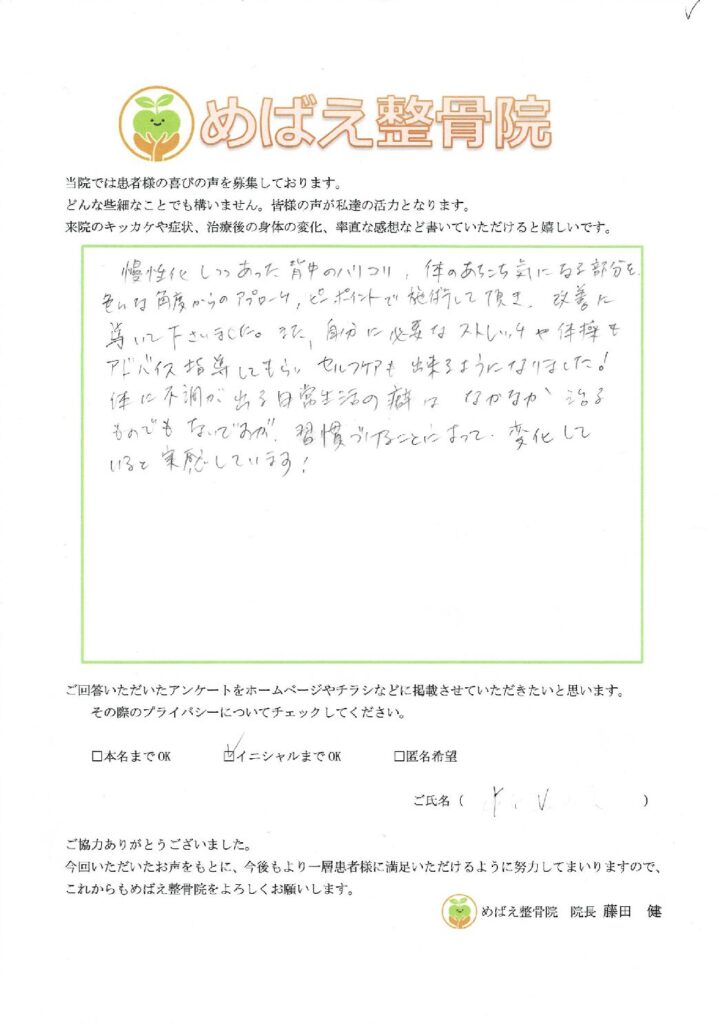 めばえ整骨院
当院では患者様の喜びの声を募集しております。
どんな些細なことでも構いません。皆様の声が私達の活力となります。
来院のキッカケや症状、治療後の身体の変化、率直な感想など書いていただけると嬉しいです。
慢性化しつつあった背中のハリコリ，体のあちこち気になる部分を、
色んな角度からのアプローチ，ピンポイントで施術して頂き、改善に
導いて下さいました。また，自分に必要なストレッチや体操も
アドバイス指導してもらい セルフケアも出来るようになりました！
体に不調が出る日常生活の癖は なかなか治る
ものでもないですが、習慣づけることによって、変化して
いると実感しています！
ご回答いただいたアンケートをホームページやチラシなどに掲載させていただきたいと思います。
その際のプライバシーについてチェックしてください。
□本名までOK ☑イニシャルまでOK □匿名希望
ご氏名（ ）
ご協力ありがとうございました。
今回いただいたお声をもとに、今後もより一層患者様に満足いただけるように努力してまいりますので、
これからもめばえ整骨院をよろしくお願いします。
めばえ整骨院 院長 藤田 健